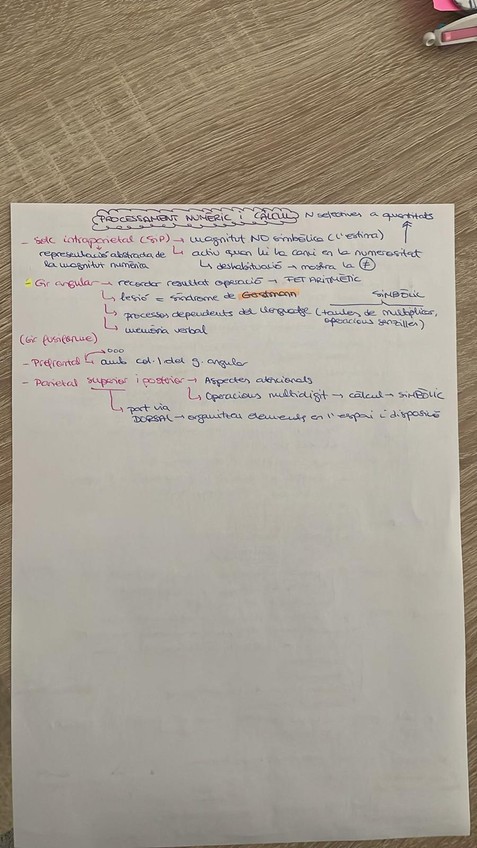 PROCESSAMENT NUMÈRIC I CÀLCUL N selectives a quantitats
- Solc intraparietal (SIP) → magnitut NO simbòlica (l'estima)
representació abstracta de la magnitut numèrica
↳ actiu quan hi ha canvi en la numerositat
↳ deshabituació → mostra la (≠)
- Gir angular → recordar resultat operació → FET ARITMÈTIC
↳ lesió = síndrome de Gerstmann
SIMBÒLIC
↳ processos dependents del llenguatge (taules de multiplicar,
operacions senzilles)
↳ memòria verbal
(Gir fusiforme)
- Prefrontal → amb col·l del g. angular
- Parietal superior i posterior → Aspectes atencionals
↳ Operacions multidígit → càlcul → SIMBÒLIC
↳ part via
DORSAL → organitzar elements en l'espai i disposició